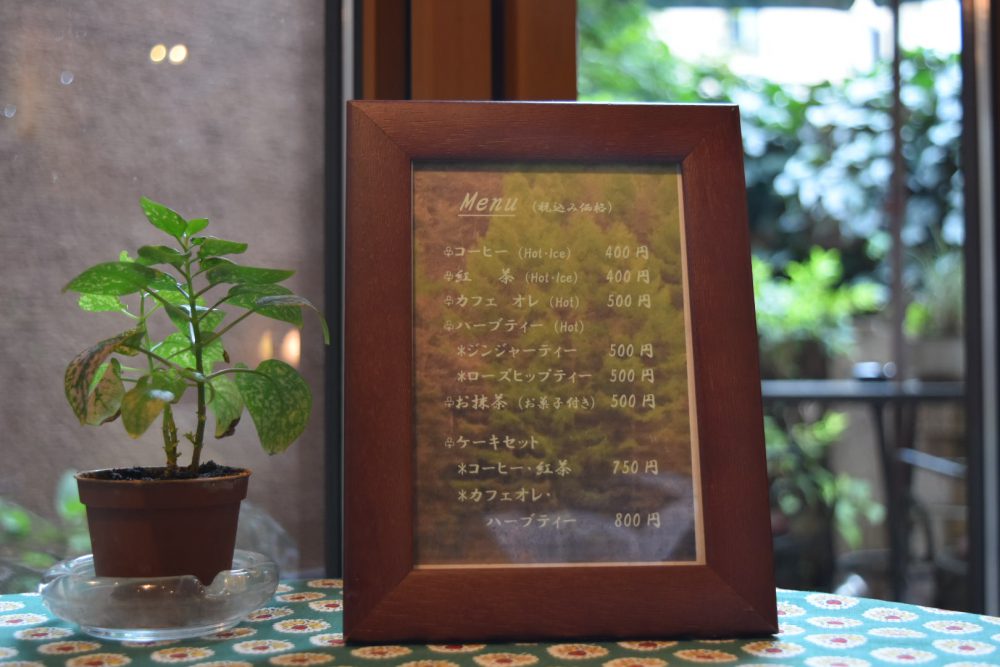 Menu (税込み価格)
♧コーヒー (Hot・Ice) 400円
♧紅 茶 (Hot・Ice) 400円
♧カフェ オレ (Hot) 500円
♧ハーブティー (Hot)
＊ジンジャーティー 500円
＊ローズヒップティー 500円
♧お抹茶 (お菓子付き) 500円
♧ケーキセット
＊コーヒー・紅茶 750円
＊カフェオレ・
ハーブティー 800円